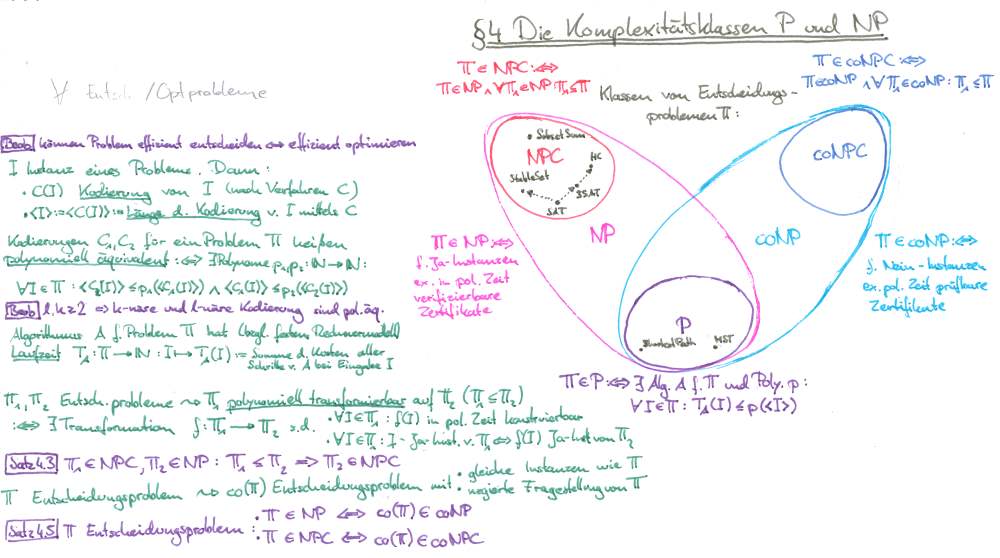 §4 Die Komplexitätsklassen P und NP
∀ Entsch./Optprobleme
Beob. können Problem effizient entscheiden ⇔ effizient optimieren
I Instanz eines Problems. Dann:
• C(I) Kodierung von I (nach Verfahren C)
• <I>:=<C(I)>:= Länge d. Kodierung v. I mittels C
Kodierungen C₁,C₂ für ein Problem Π heißen
polynomiell äquivalent :⇔ ∃ Polynome p₁,p₂: ℕ→ℕ:
∀I∈Π: <C₂(I)> ≤ p₁(<C₁(I)>) ∧ <C₁(I)> ≤ p₂(<C₂(I)>)
Beob. l,k≥2 ⇒ k-näre und l-näre Kodierung sind pol. äq.
Algorithmus A f. Problem Π hat (bzgl. festem Rechnermodell)
Laufzeit T_A: Π→ℕ: I↦T_A(I) := Summe d. Kosten aller
Schritte v. A bei Eingabe I
Π₁,Π₂ Entsch.probleme ⤳ Π₁ polynomiell transformierbar auf Π₂ (Π₁≤Π₂)
:⇔ ∃ Transformation f: Π₁→Π₂ s.d. • ∀I∈Π₁: f(I) in pol. Zeit konstruierbar
• ∀I∈Π₁: I Ja-Inst. v. Π₁ ⇔ f(I) Ja-Inst von Π₂
Satz 4.3 Π₁∈NPC, Π₂∈NP: Π₁≤Π₂ ⇒ Π₂∈NPC
Π Entscheidungsproblem ⤳ co(Π) Entscheidungsproblem mit • gleiche Instanzen wie Π
• negierte Fragestellung von Π
Satz 4.5 Π Entscheidungsproblem: • Π∈NP ⇔ co(Π)∈coNP
• Π∈NPC ⇔ co(Π)∈coNPC
Π∈NPC:⇔
Π∈NP ∧ ∀Π₁∈NP: Π₁≤Π
Klassen von Entscheidungs-
problemen Π:
Π∈coNPC:⇔
Π∈coNP ∧ ∀Π₁∈coNP: Π₁≤Π
• SubsetSum
NPC
HC
StableSet
3SAT
SAT
coNPC
NP
coNP
Π∈NP:⇔
f. Ja-Instanzen
ex. in pol. Zeit
verifizierbare
Zertifikate
Π∈coNP:⇔
f. Nein-Instanzen
ex. pol. Zeit prüfbare
Zertifikate
P
• ShortestPath
• MST
Π∈P:⇔ ∃ Alg. A f. Π und Poly. p:
∀I∈Π: T_A(I) ≤ p(<I>)